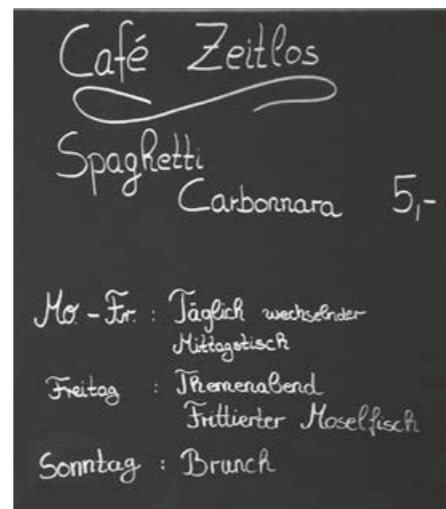 Café Zeitlos
Spaghetti
Carbonnara 5,-
Mo. - Fr. : Täglich wechselnder
Mittagstisch
Freitag : Themenabend
Frittierter Moselfisch
Sonntag : Brunch